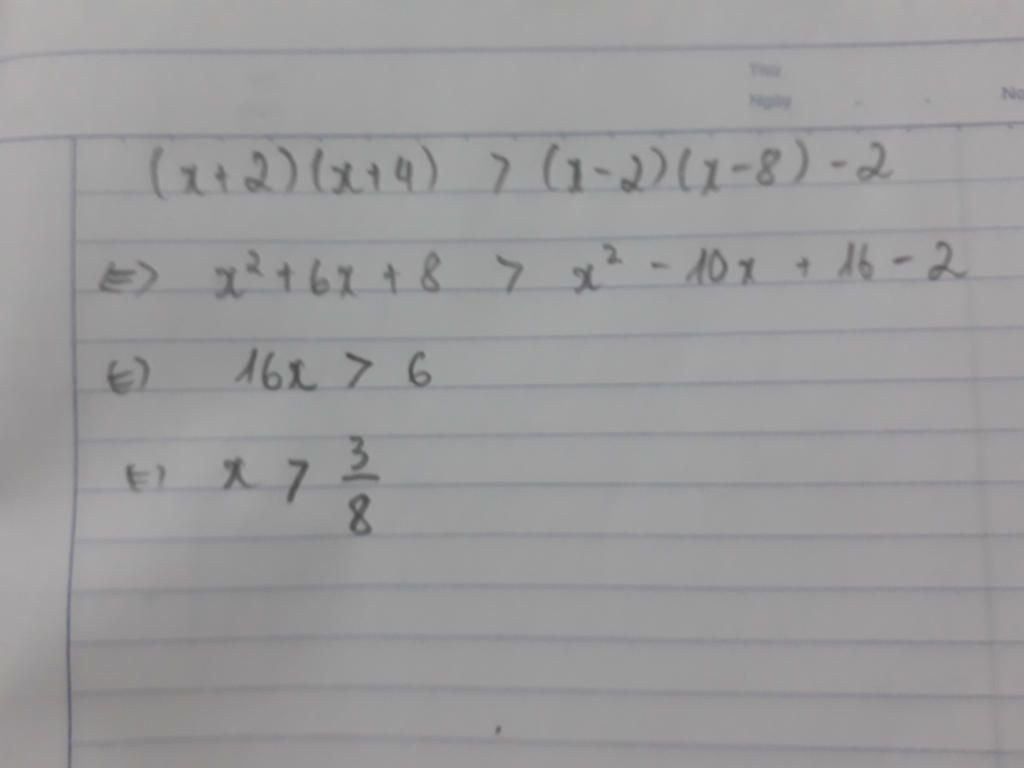 Thứ
Ngày . . No
(x+2)(x+4) > (x-2)(x-8) - 2
<=> x² + 6x + 8 > x² - 10x + 16 - 2
<=> 16x > 6
<=> x > 3/8